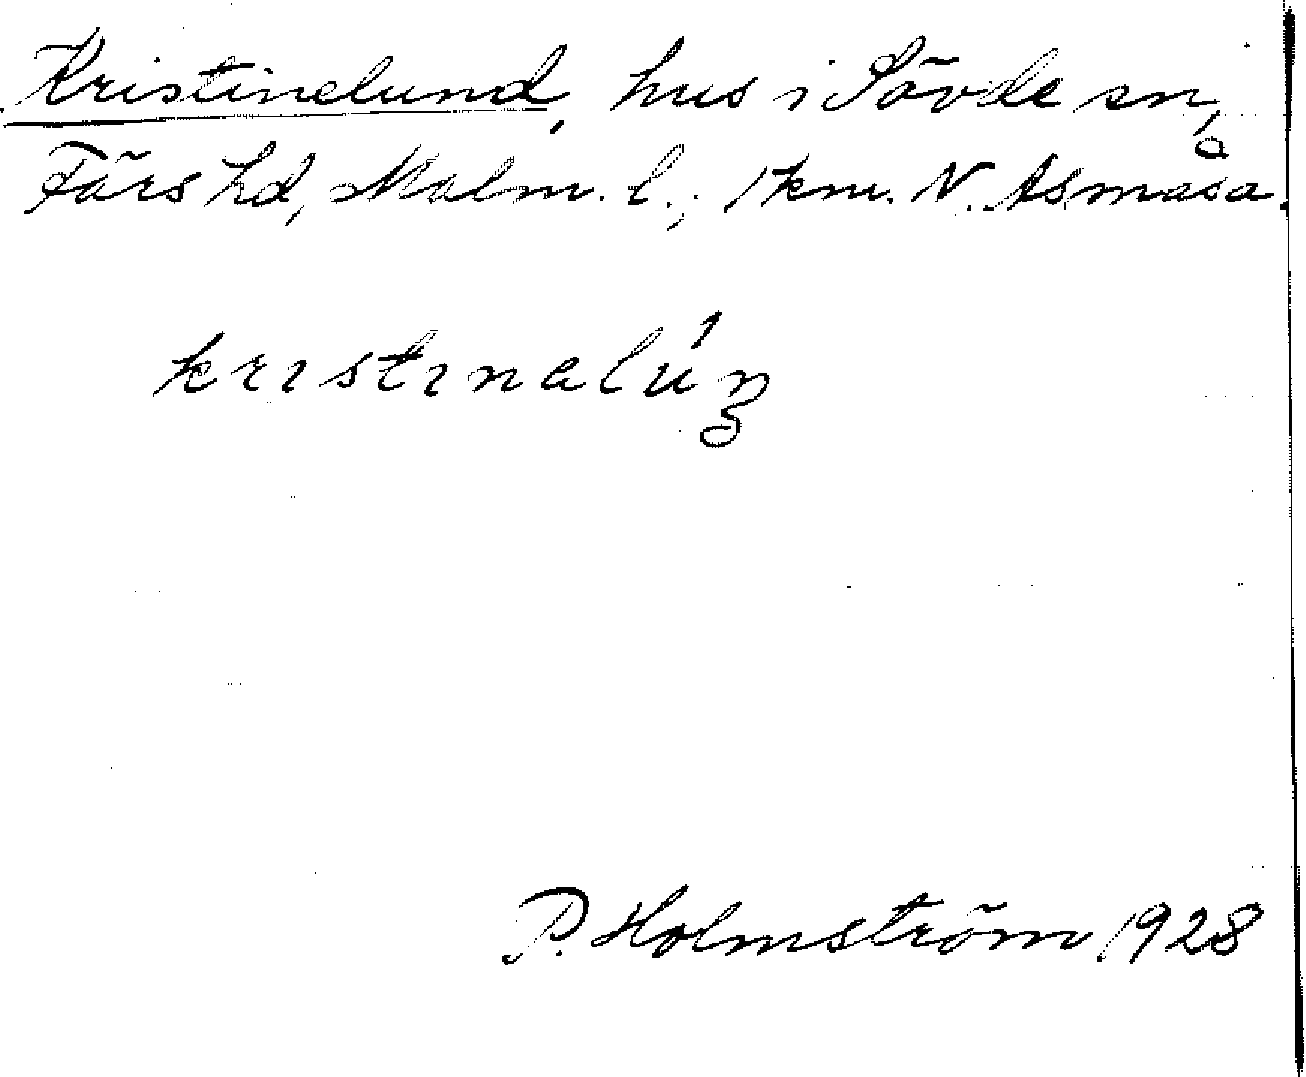 Kristinelund, hus i Sövde sn,
Färs hd, Malm. l., 1 km. N. Åsmåsa.
kristinalún
P. Holmström 1928